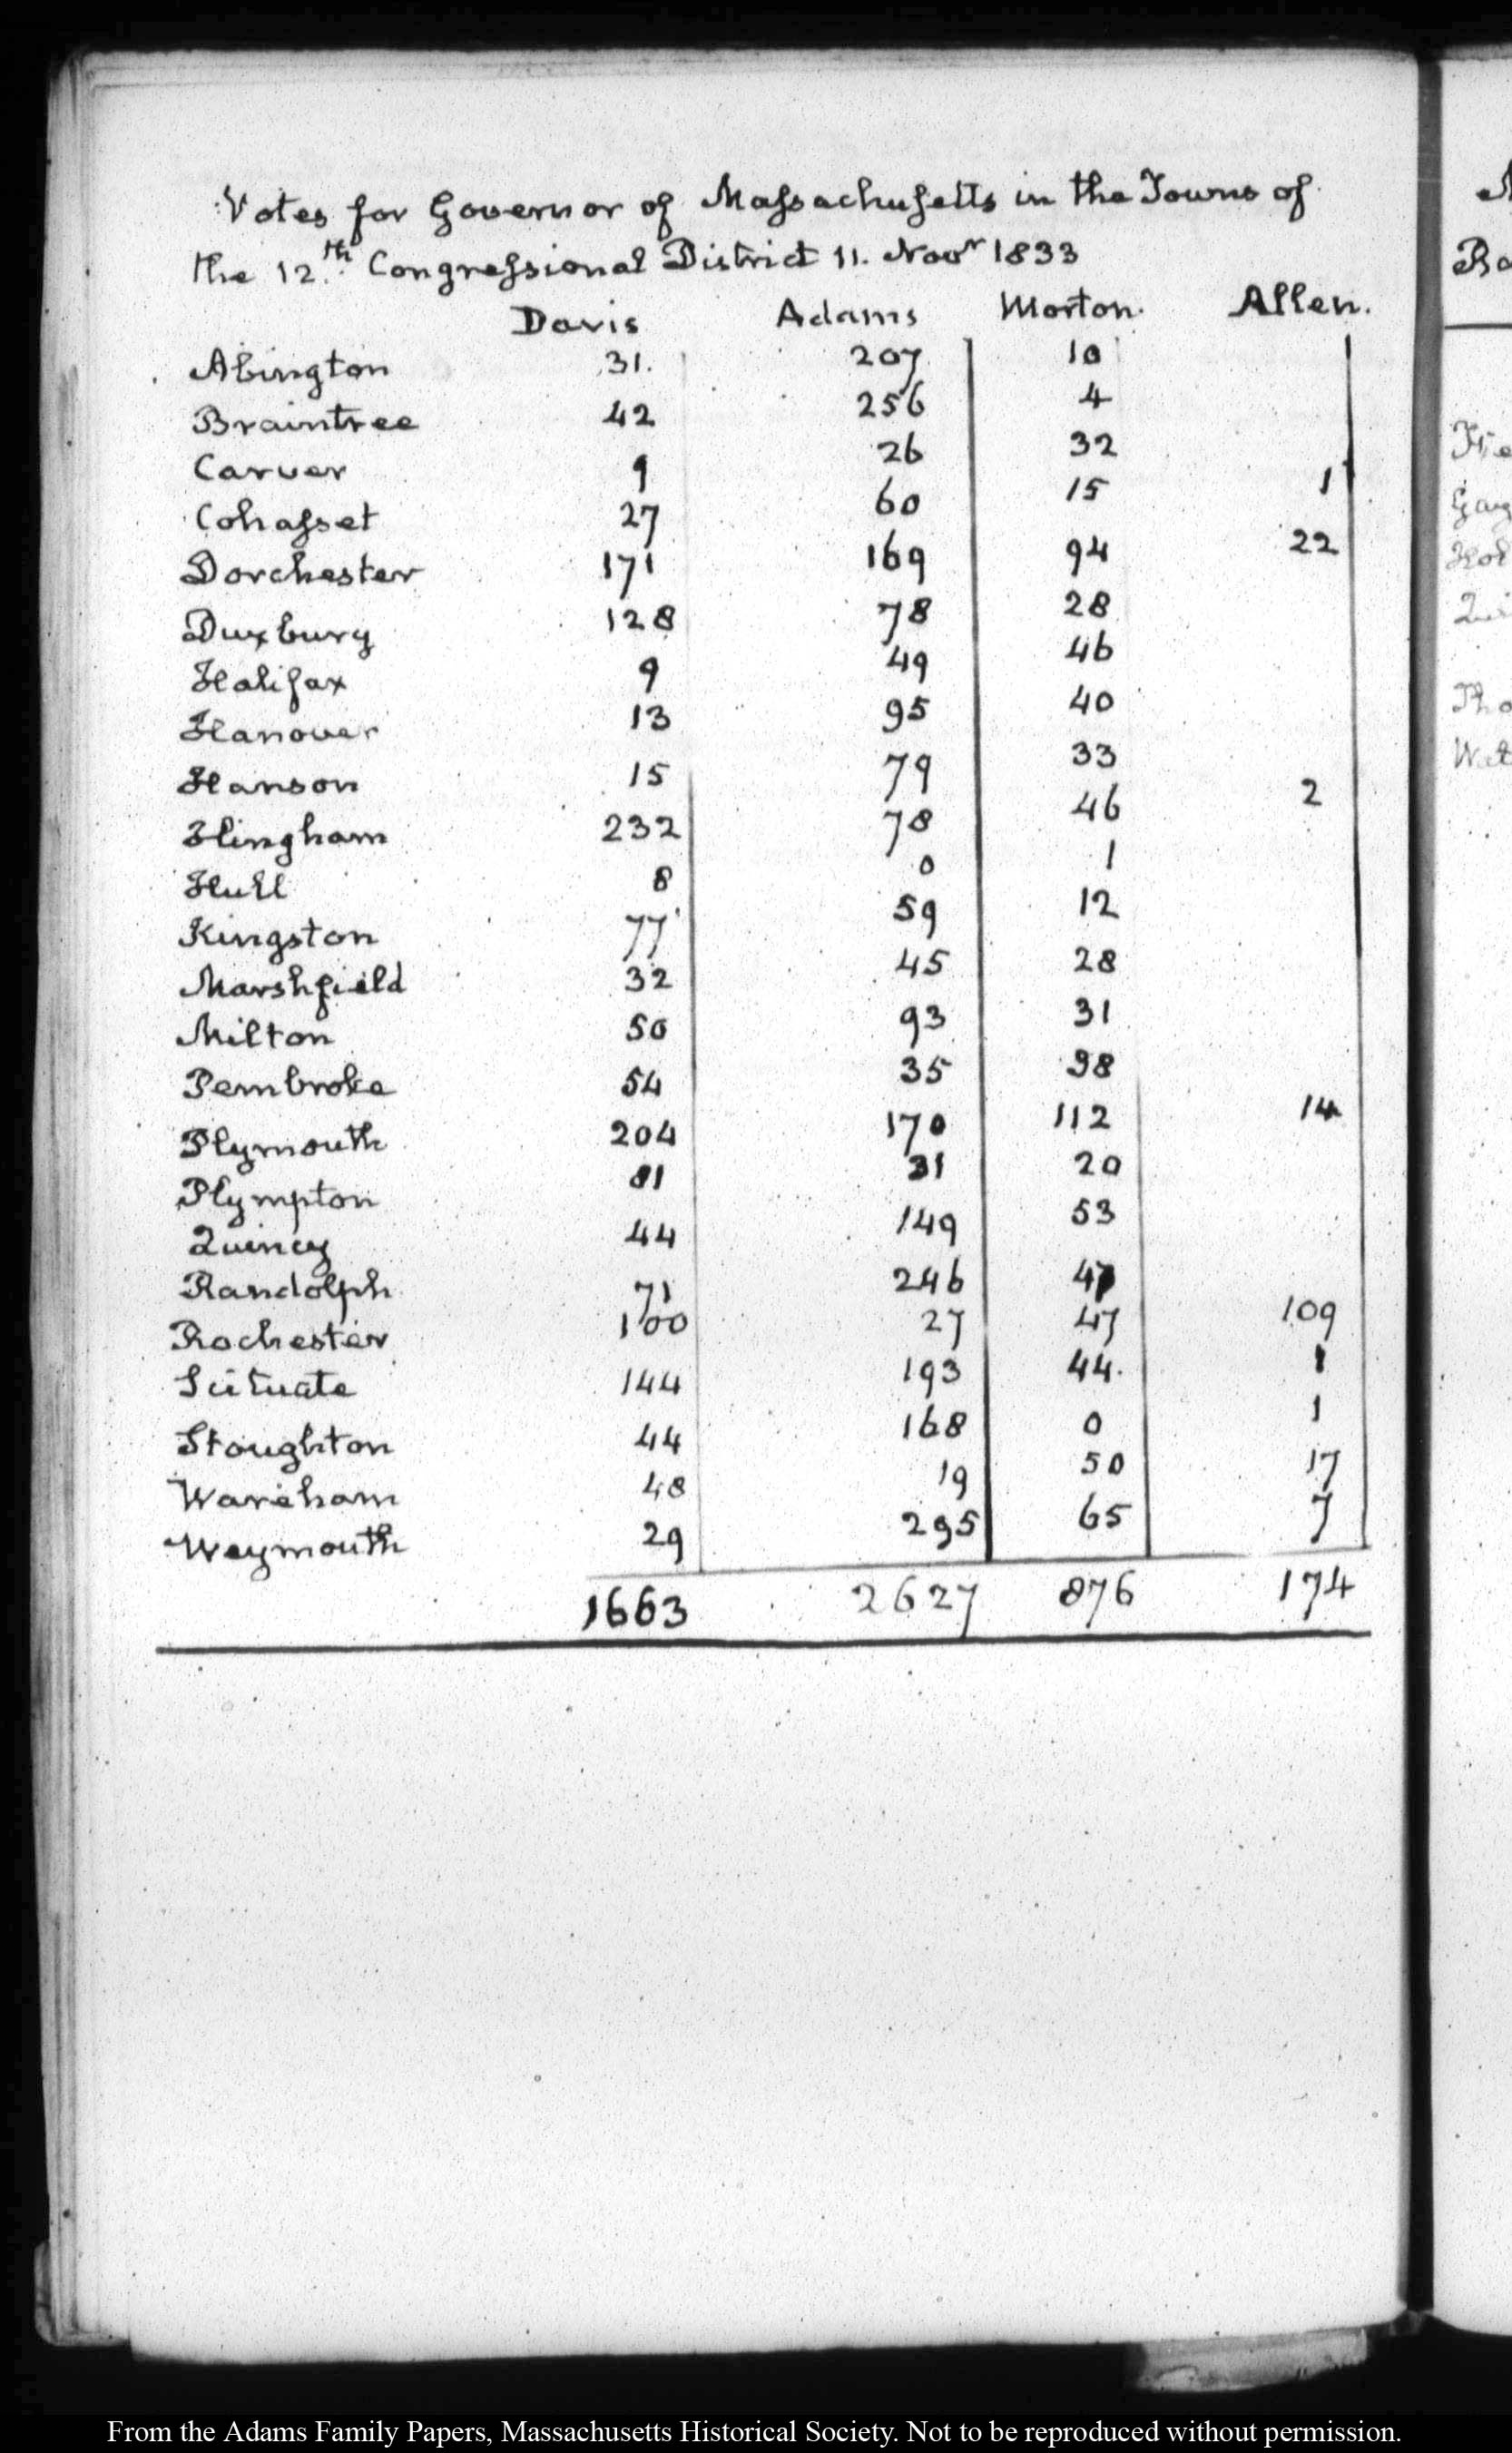 Votes for Governor of Massachusetts in the Towns of
the 12.th Congressional District 11. Novr 1833
Davis Adams Morton. Allen.
Abington 31. 207 10
Braintree 42 256 4
Carver 9 26 32
Cohasset 27 60 15 1
Dorchester 171 169 94 22
Duxbury 128 78 28
Halifax 9 49 46
Hanover 13 95 40
Hanson 15 79 33
Hingham 232 78 46 2
Hull 8 0 1
Kingston 77 59 12
Marshfield 32 45 28
Milton 50 93 31
Pembroke 54 35 38
Plymouth 204 170 112 14
Plympton 81 31 20
Quincy 44 149 53
Randolph 71 246 47
Rochester 100 27 47 109
Scituate 144 193 44. 1
Stoughton 44 168 0 1
Wareham 48 19 50 17
Weymouth 29 295 65 7
1663 2627 876 174
From the Adams Family Papers, Massachusetts Historical Society. Not to be reproduced without permission.